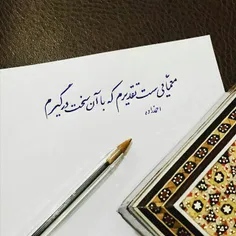 معمّایی ست تقدیرم که با آن سخت درگیرم